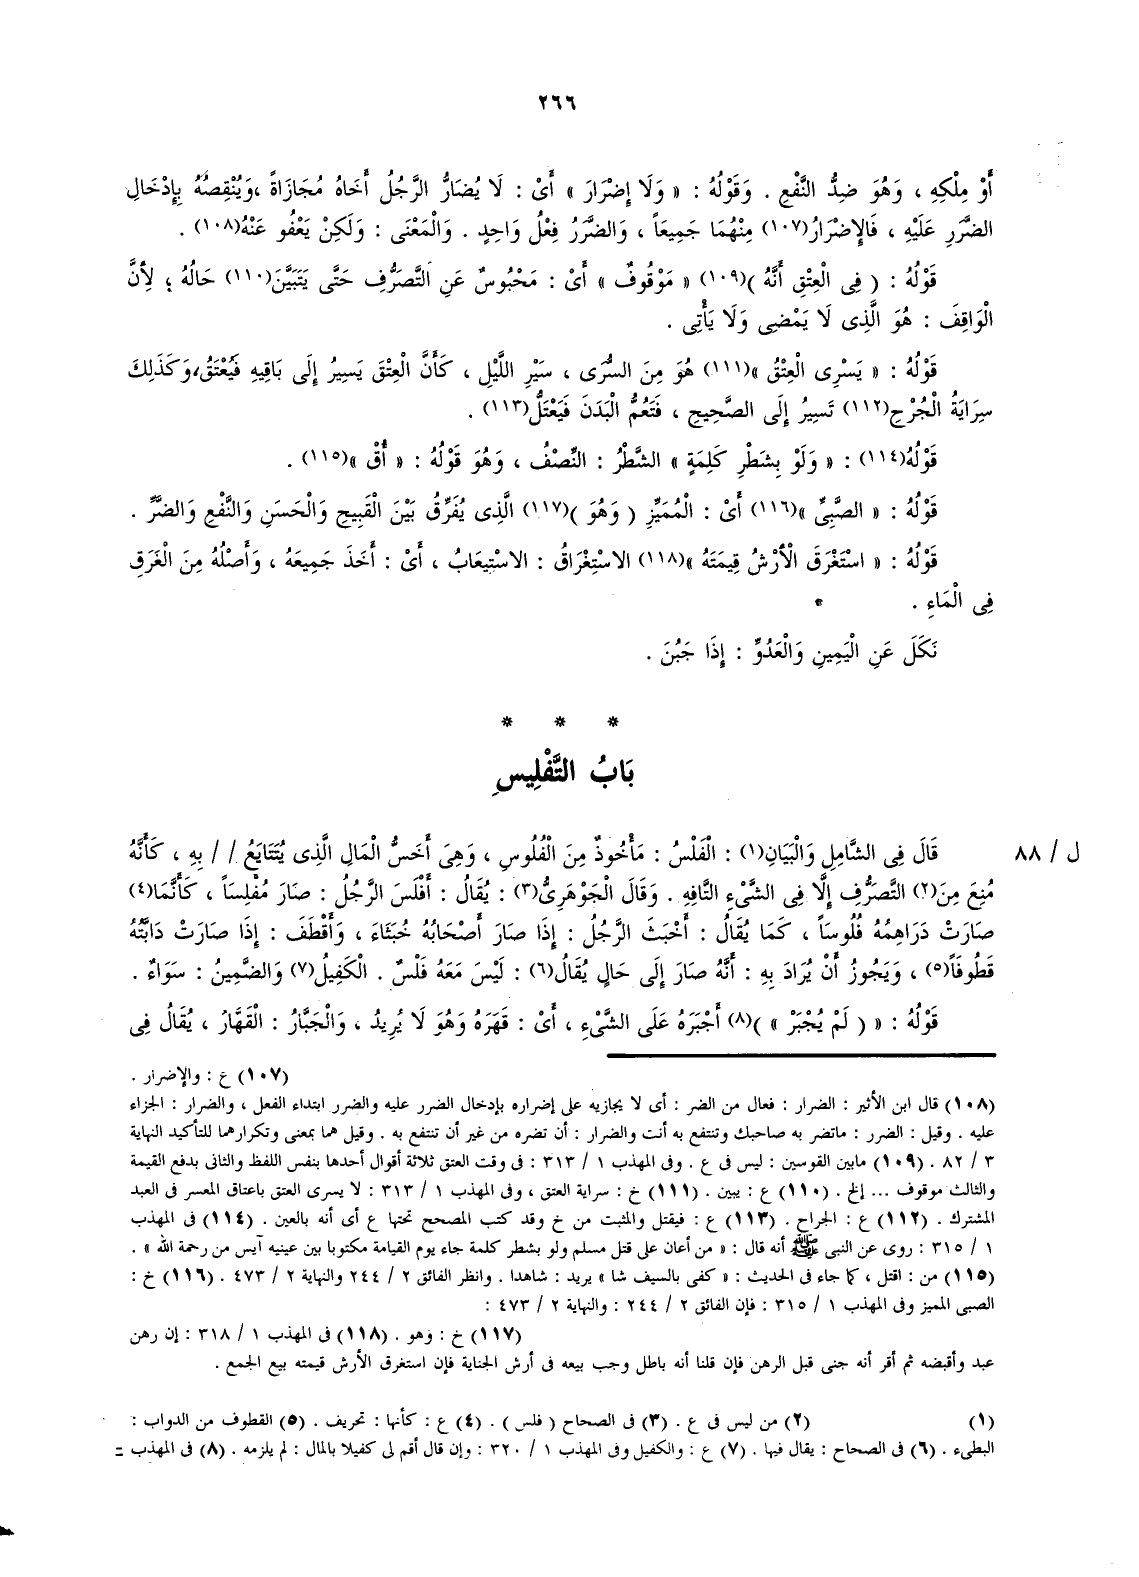 ٢٦٦
أَوْ مِلْكِهِ ، وَهُوَ ضِدُّ النَّفْعِ . وَقَوْلُهُ : « وَلَا إِضْرَارَ » أَىْ : لَا يُضَارُّ الرَّجُلُ أَخَاهُ مُجَازَاةً ،وَيُنْقِصُهُ بِإِدْخَالِ
الضَّرَرِ عَلَيْهِ ، فَالإِضْرَارُ(١٠٧) مِنْهُمَا جَمِيعَاً ، وَالضَّرَرُ فِعْلُ وَاحِدٍ . وَالْمَعْنَى : وَلَكِنْ يَعْفُو عَنْهُ(١٠٨) .
قَوْلُهُ : ( فِى الْعِتْقِ أَنَّهُ )(١٠٩) « مَوْقُوفٌ » أَىْ : مَحْبُوسٌ عَنِ التَّصَرُّفِ حَتَّى يَتَبَيَّنَ(١١٠) حَالُهُ ؛ لِأَنَّ
الْوَاقِفَ : هُوَ الَّذِى لَا يَمْضِى وَلَا يَأْتِى .
قَوْلُهُ : « يَسْرِى الْعِتْقُ »(١١١) هُوَ مِنَ السُّرَى ، سَيْرِ اللَّيْلِ ، كَأَنَّ الْعِتْقَ يَسِيرُ إِلَى بَاقِيهِ فَيُعْتَقُ،وَكَذَلِكَ
سِرَايَةُ الْجُرْحِ(١١٢) تَسِيرُ إِلَى الصَّحِيحِ ، فَتَعُمُّ الْبَدَنَ فَيَعْتَلُّ(١١٣) .
قَوْلُهُ(١١٤) : « وَلَوْ بِشَطْرِ كَلِمَةٍ » الشَّطْرُ : النِّصْفُ ، وَهُوَ قَوْلُهُ : « أُقْ »(١١٥) .
قَوْلُهُ : « الصَّبِىِّ »(١١٦) أَىْ : الْمُمَيِّزِ ( وَهُوَ )(١١٧) الَّذِى يُفَرِّقُ بَيْنَ الْقَبِيحِ وَالْحَسَنِ وَالنَّفْعِ وَالضَّرِّ .
قَوْلُهُ : « اسْتَغْرَقَ الْأَرْشُ قِيمَتَهُ »(١١٨) الاسْتِغْرَاقُ : الاسْتِيعَابُ ، أَىْ : أَخَذَ جَمِيعَهُ ، وَأَصْلُهُ مِنَ الْغَرَقِ
فِى الْمَاءِ .
نَكَلَ عَنِ الْيَمِينِ وَالْعَدُوِّ : إِذَا جَبُنَ .
* * *
بَابُ التَّفْلِيسِ
قَالَ فِى الشَّامِلِ وَالْبَيَانِ(١) : الْفَلْسُ : مَأْخُوذٌ مِنَ الْفُلُوسِ ، وَهِىَ أَخَسُّ الْمَالِ الَّذِى يُتَتَايَعُ / / بِهِ ، كَأَنَّهُ ل / ٨٨
مُنِعَ مِنَ(٢) التَّصَرُّفِ إِلَّا فِى الشَّىْءِ التَّافِهِ . وَقَالَ الْجَوْهَرِىُّ(٣) : يُقَالُ : أَفْلَسَ الرَّجُلُ : صَارَ مُفْلِسَاً ، كَأَنَّمَا(٤)
صَارَتْ دَرَاهِمُهُ فُلُوسَاً ، كَمَا يُقَالُ : أَخْبَثَ الرَّجُلُ : إِذَا صَارَ أَصْحَابُهُ خُبَثَاءَ ، وَأَقْطَفَ : إِذَا صَارَتْ دَابَّتُهُ
قَطُوفَاً(٥) ، وَيَجُوزُ أَنْ يُرَادَ بِهِ : أَنَّهُ صَارَ إِلَى حَالٍ يُقَالُ(٦) : لَيْسَ مَعَهُ فَلْسٌ . الْكَفِيلُ(٧) وَالضَّمِينُ : سَوَاءٌ .
قَوْلُهُ : « ( لَمْ يُجْبَرْ » )(٨) أَجْبَرَهُ عَلَى الشَّىْءِ ، أَىْ : قَهَرَهُ وَهُوَ لَا يُرِيدُ ، وَالْجَبَّارُ : الْقَهَّارُ ، يُقَالُ فِى
(١٠٧) ع : والإضرار .
(١٠٨) قال ابن الأثير : الضرار : فعال من الضر : أى لا يجازيه على إضراره بإدخال الضرر عليه والضرر ابتداء الفعل ، والضرار : الجزاء
عليه . وقيل : الضرر : ماتضر به صاحبك وتنتفع به أنت والضرار : أن تضره من غير أن تنتفع به . وقيل هما بمعنى وتكرارهما للتأكيد النهاية
٣ / ٨٢ . (١٠٩) مابين القوسين : ليس فى ع . وفى المهذب ١ / ٣١٣ : فى وقت العتق ثلاثة أقوال أحدها بنفس اللفظ والثانى بدفع القيمة
والثالث موقوف ... إلخ . (١١٠) ع : يبين . (١١١) خ : سراية العتق ، وفى المهذب ١ / ٣١٣ : لا يسرى العتق باعتاق المعسر فى العبد
المشترك . (١١٢) ع : الجراح . (١١٣) ع : فيقتل والمثبت من خ وقد كتب المصحح تحتها ع أى أنه بالعين . (١١٤) فى المهذب
١ / ٣١٥ : روى عن النبى ﷺ أنه قال : « من أعان على قتل مسلم ولو بشطر كلمة جاء يوم القيامة مكتوبا بين عينيه آيس من رحمة الله » .
(١١٥) من : اقتل ، كما جاء فى الحديث : « كفى بالسيف شا » يريد : شاهدا . وانظر الفائق ٢ / ٢٤٤ والنهاية ٢ / ٤٧٣ . (١١٦) خ :
الصبى المميز وفى المهذب ١ / ٣١٥ : فإن الفائق ٢ / ٢٤٤ : والنهاية ٢ / ٤٧٣ :
(١١٧) خ : وهو . (١١٨) فى المهذب ١ / ٣١٨ : إن رهن
عبد وأقبضه ثم أقر أنه جنى قبل الرهن فإن قلنا أنه باطل وجب بيعه فى أرش الجناية فإن استغرق الأرش قيمته بيع الجمع .
(١) (٢) من ليس فى ع . (٣) فى الصحاح ( فلس ) . (٤) ع : كأنها : تحريف . (٥) القطوف من الدواب :
البطىء . (٦) فى الصحاح : يقال فيها . (٧) ع : والكفيل وفى المهذب ١ / ٣٢٠ : وإن قال أقم لى كفيلا بالمال : لم يلزمه . (٨) فى المهذب =